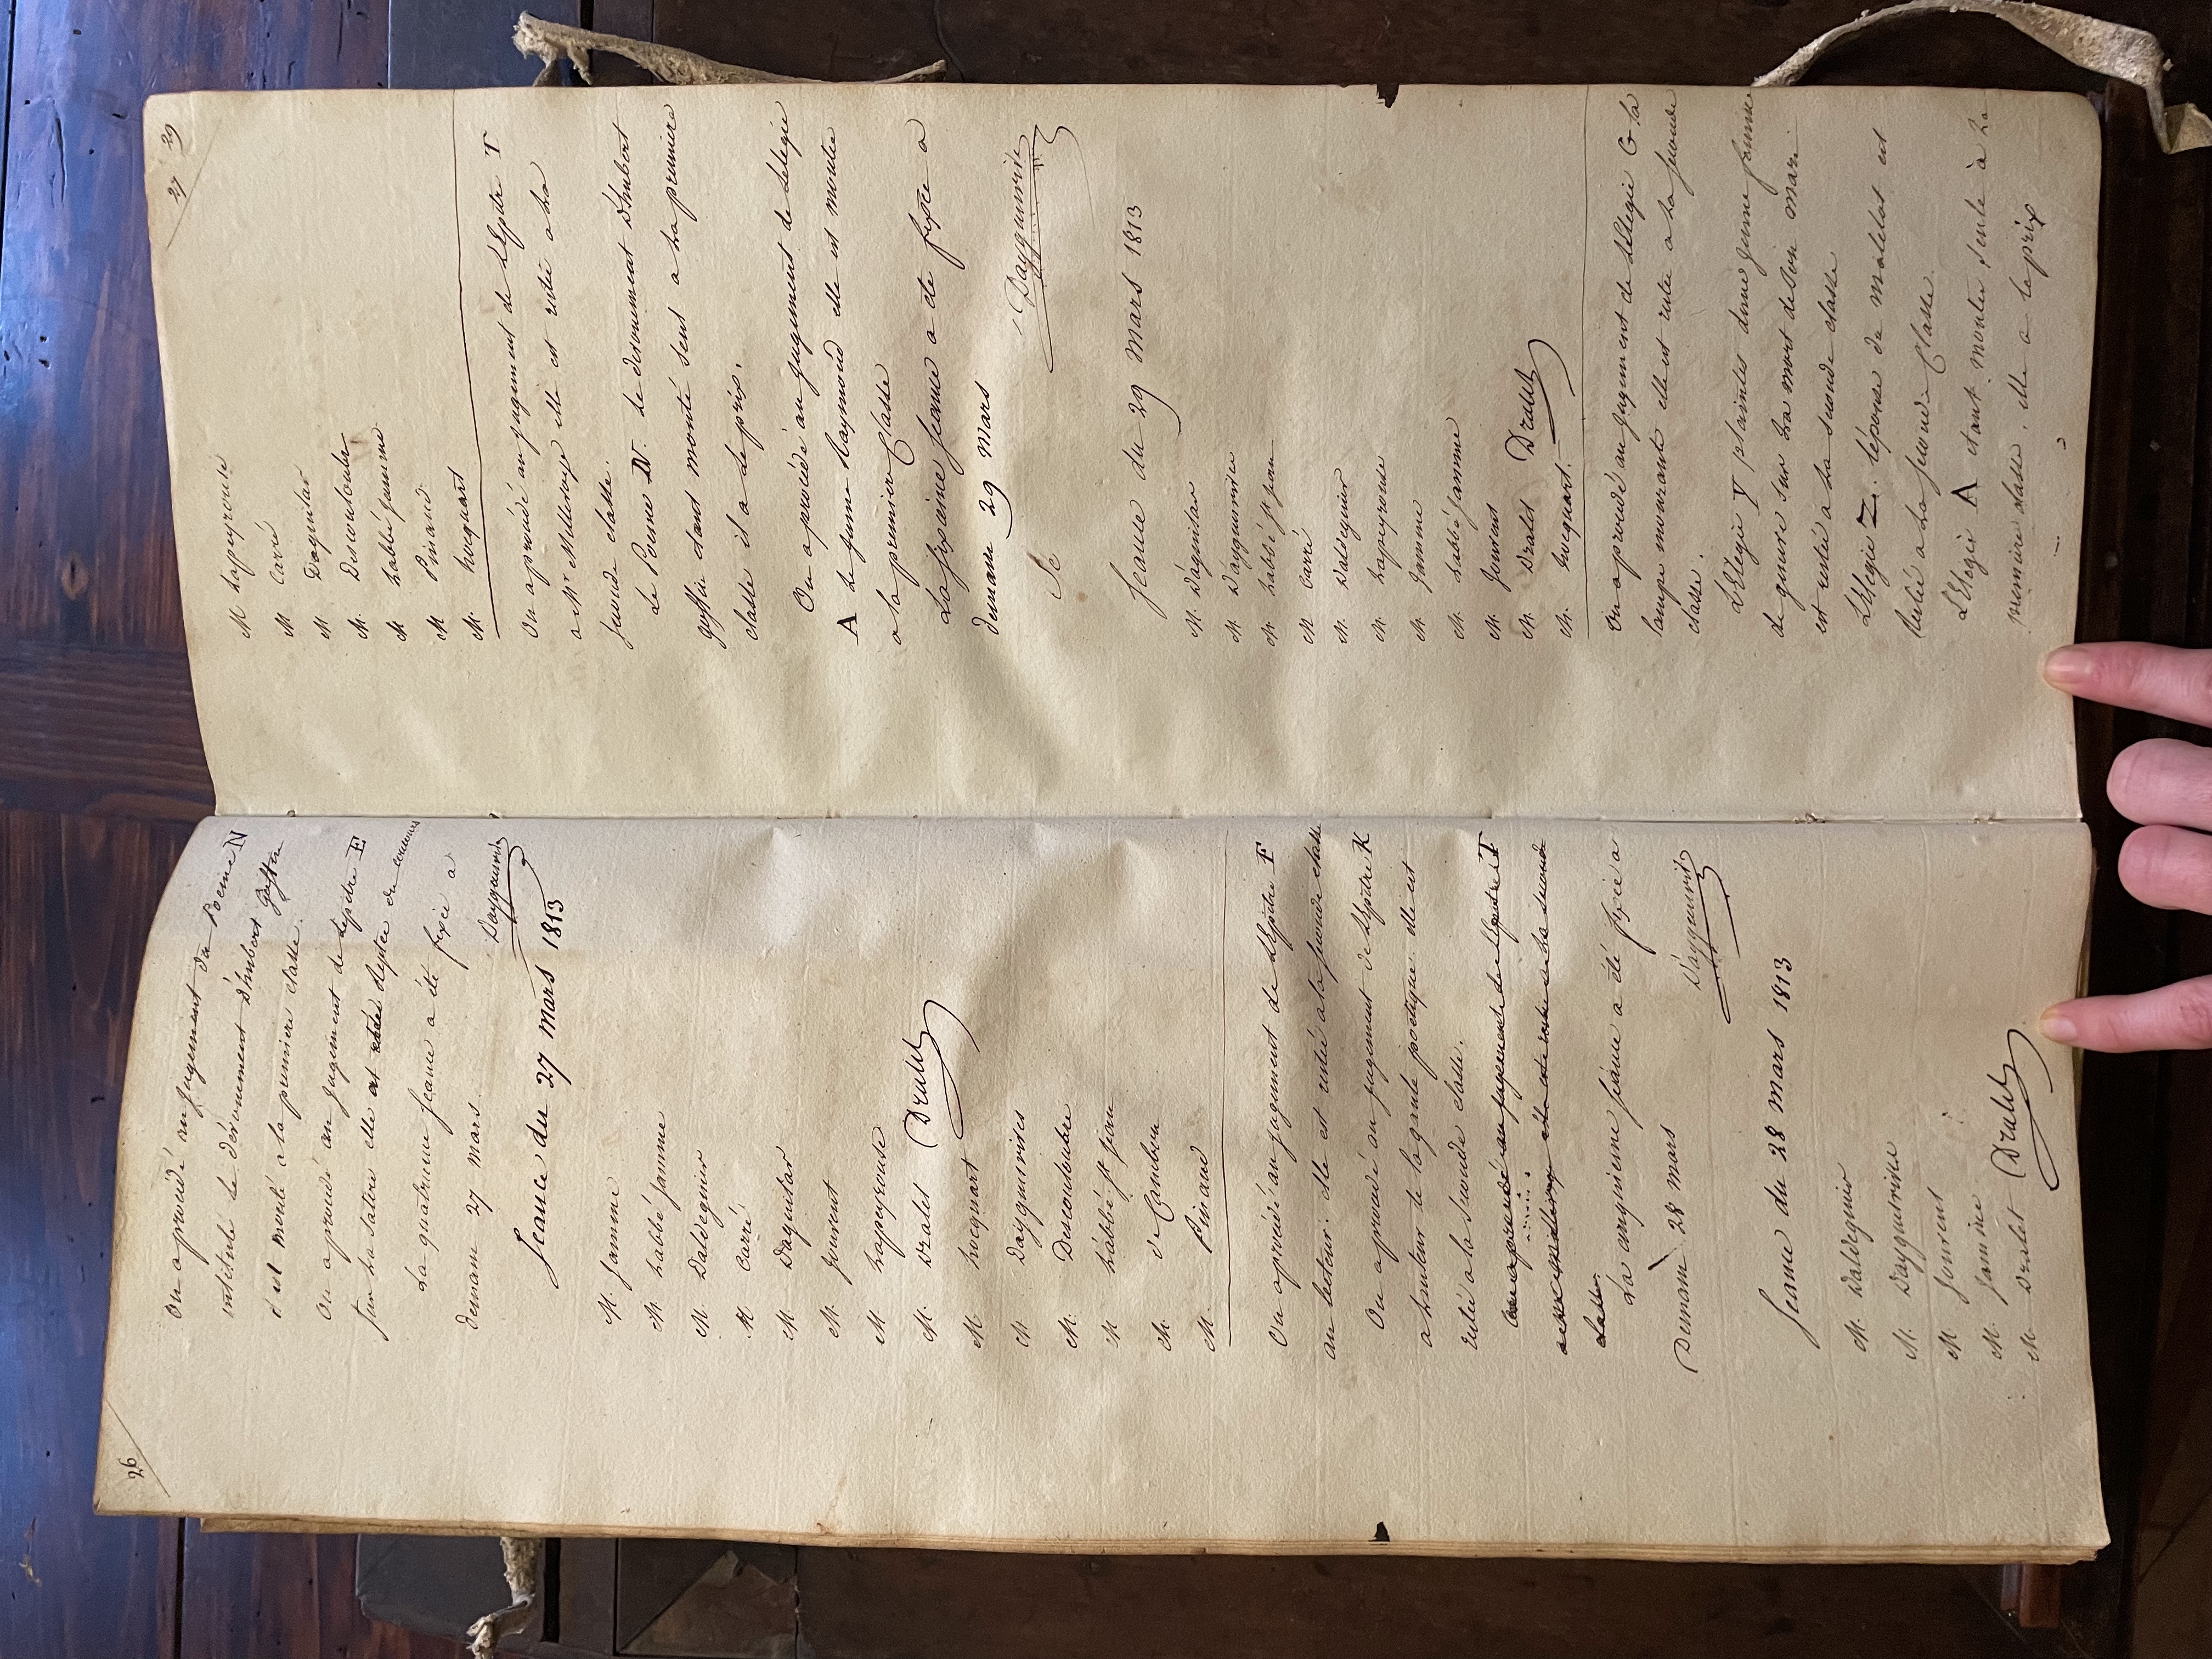 26
On a procédé au jugement du Poeme N
intitulé le dévouement d'hubert goffin
il est monté a la premiere classe.
On a procédé au jugement de l'epitre E
sur la satire elle est restée du concours
La quatrieme seance a été fixée a
demain 27 mars. Dayguesvives
Seance du 27 mars 1813
M. Jamme
M. Labbé Jamme
M. Daldeguier
M Carré
M. Daguilar
M. Jouvent
M Lapeyrouse
M. Dralet Dralet
M. hocquart
M Dayguesvives
M. Descouloubre
M Labbé St jean
M. de Cambon
M. Pinaud
On a procédé au jugement de l'épitre F
au lecteur. elle est restée a la seconde classe
On a procédé au jugement de l'épitre K
a l'auteur de la gaule poetique. elle est
restée a la seconde classe.
On a procédé au jugement de l'épitre T
elle est restée a la seconde
classe
La cinquieme seance a été fixée a
Demain 28 mars Dayguesvives
Seance du 28 mars 1813
M. Daldeguier
M. Dayguesvives
M. Jouvent
M. Jamme
M. Dralet Dralet
27 29
M Lapeyrouse
M Carré
M Daguilar
M. Descouloubre
M Labbé Jamme
M Pinaud
M. hocquart
On a procédé au jugement de l'Epitre T
a Mr Millevoye elle est restée a la
seconde classe.
Le Poeme N. le devouement d'hubert
goffin étant monté seul a la premiere
classe il a le prix.
On a procédé au jugement de l'elegie
A le jeune Raymond elle est montée
a la premiere classe
La sixieme seance a été fixée a
demain 29 mars Dayguesvives
Se
Seance du 29 mars 1813
M. Daguilar
M Dayguesvives
M Labbé St jean
M Carré
M. Daldeguier
M. Lapeyrouse
M. Jamme
M. Labbé Jamme
M. Jouvent
M. Dralet Dralet
M. hocquart.
On a procédé au jugement de l'Elegie G la
lampe mourante elle est restée a la seconde
classe.
L'Elegie Y plaintes d'une jeune femme
de guerre sur la mort de son mari
est restée a la seconde classe
L'Elegie Z. l'épouse du matelot est
restée a la seconde classe.
L'Elegie A étant montée seule à la
premiere classe. elle a le prix